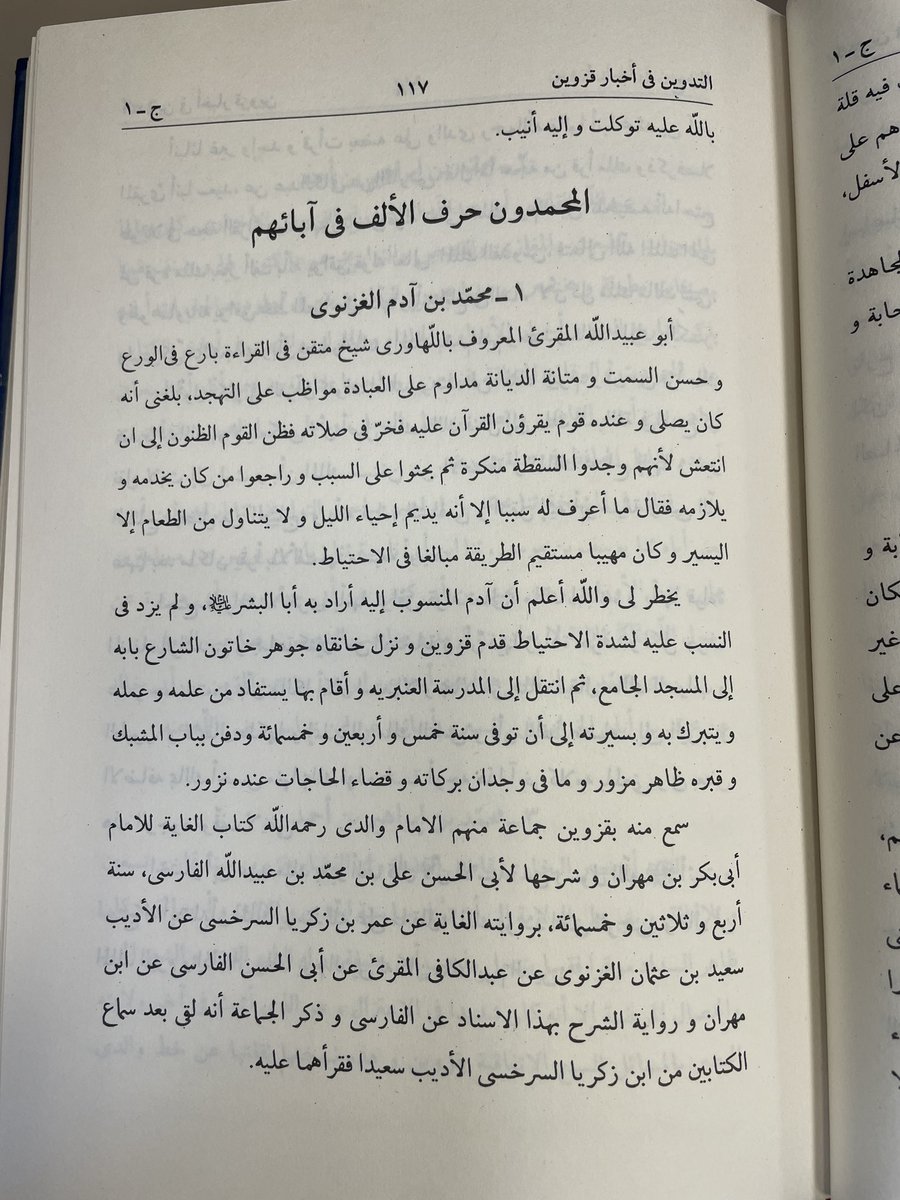 التدوين فى أخبار قزوين ١١٧ ج ـ ١
باللّه عليه توكلت و إليه أنيب.
المحمدون حرف الألف فى آبائهم
١ ـ محمّد بن آدم الغزنوى
أبو عبيداللّه المقرئ المعروف باللّهاورى شيخ متقن فى القراءة بارع فى‌الورع
و حسن السمت و متانة الديانة مداوم على العبادة مواظب على التهجد، بلغنى أنه
كان يصلى و عنده قوم يقرؤن القرآن عليه فخرّ فى صلاته فظن القوم الظنون إلى ان
انتعش لأنهم وجدوا السقطة منكرة ثم بحثوا على السبب و راجعوا من كان يخدمه و
يلازمه فقال ما أعرف له سببا إلا أنه يديم إحياء الليل و لا يتناول من الطعام إلا
اليسير و كان مهيبا مستقيم الطريقة مبالغا فى الاحتياط.
يخطر لى واللّه أعلم أن آدم المنسوب إليه أراد به أبا البشر، و لم يزد فى
النسب عليه لشدة الاحتياط قدم قزوين و نزل خانقاه جوهر خاتون الشارع بابه
إلى المسجد الجامع، ثم انتقل إلى المدرسة العنبريه و أقام بها يستفاد من علمه و عمله
و يتبرك به و بسيرته إلى أن توفى سنة خمس و أربعين و خمسمائة ودفن بباب المشبك
و قبره ظاهر مزور و ما فى وجدان بركاته و قضاء الحاجات عنده نزور.
سمع منه بقزوين جماعة منهم الامام والدى رحمه‌اللّه كتاب الغاية للامام
أبى‌بكر بن مهران و شرحها لأبى الحسن على بن محمّد بن عبيداللّه الفارسى، سنة
أربع و ثلاثين و خمسمائة، بروايته الغاية عن عمر بن زكريا السرخسى عن الأديب
سعيد بن عثمان الغزنوى عن عبدالكافى المقرئ عن أبى الحسن الفارسى عن ابن
مهران و رواية الشرح بهذا الاسناد عن الفارسى و ذكر الجماعة أنه لقى بعد سماع
الكتابين من ابن زكريا السرخسى الأديب سعيدا فقرأهما عليه.
ج ـ ١
فيه قلة
هم على
لأسفل،
لجاهدة
حابة و
كان
غير
على
عن